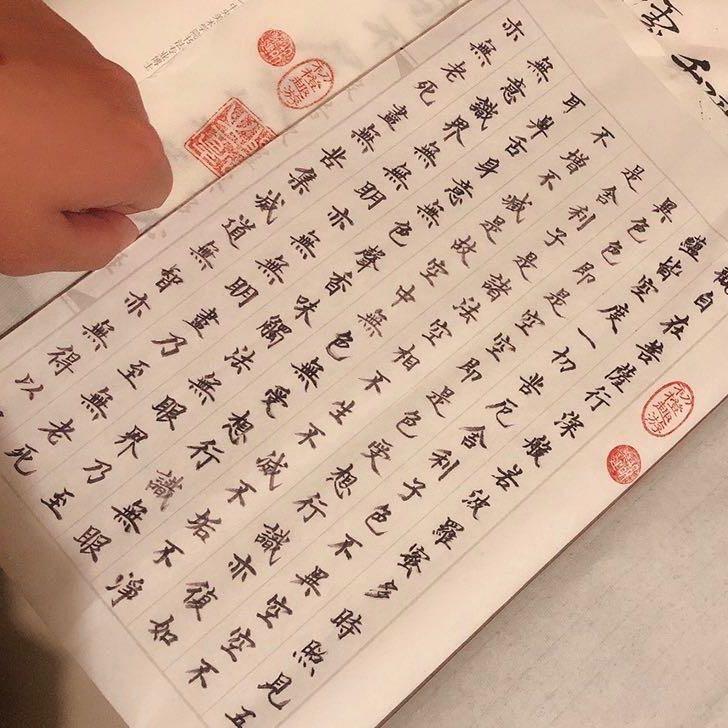 觀自在菩薩行深般若波羅蜜多時照見五
蘊皆空度一切苦厄舍利子色不異空空不
異色色即是空空即是色受想行識亦復如
是舍利子是諸法空相不生不滅不垢不淨
不增不減是故空中無色無受想行識無眼
耳鼻舌身意無色聲香味觸法無眼界乃至
無意識界無無明亦無無明盡乃至無老死
亦無老死盡無苦集滅道無智亦無得以